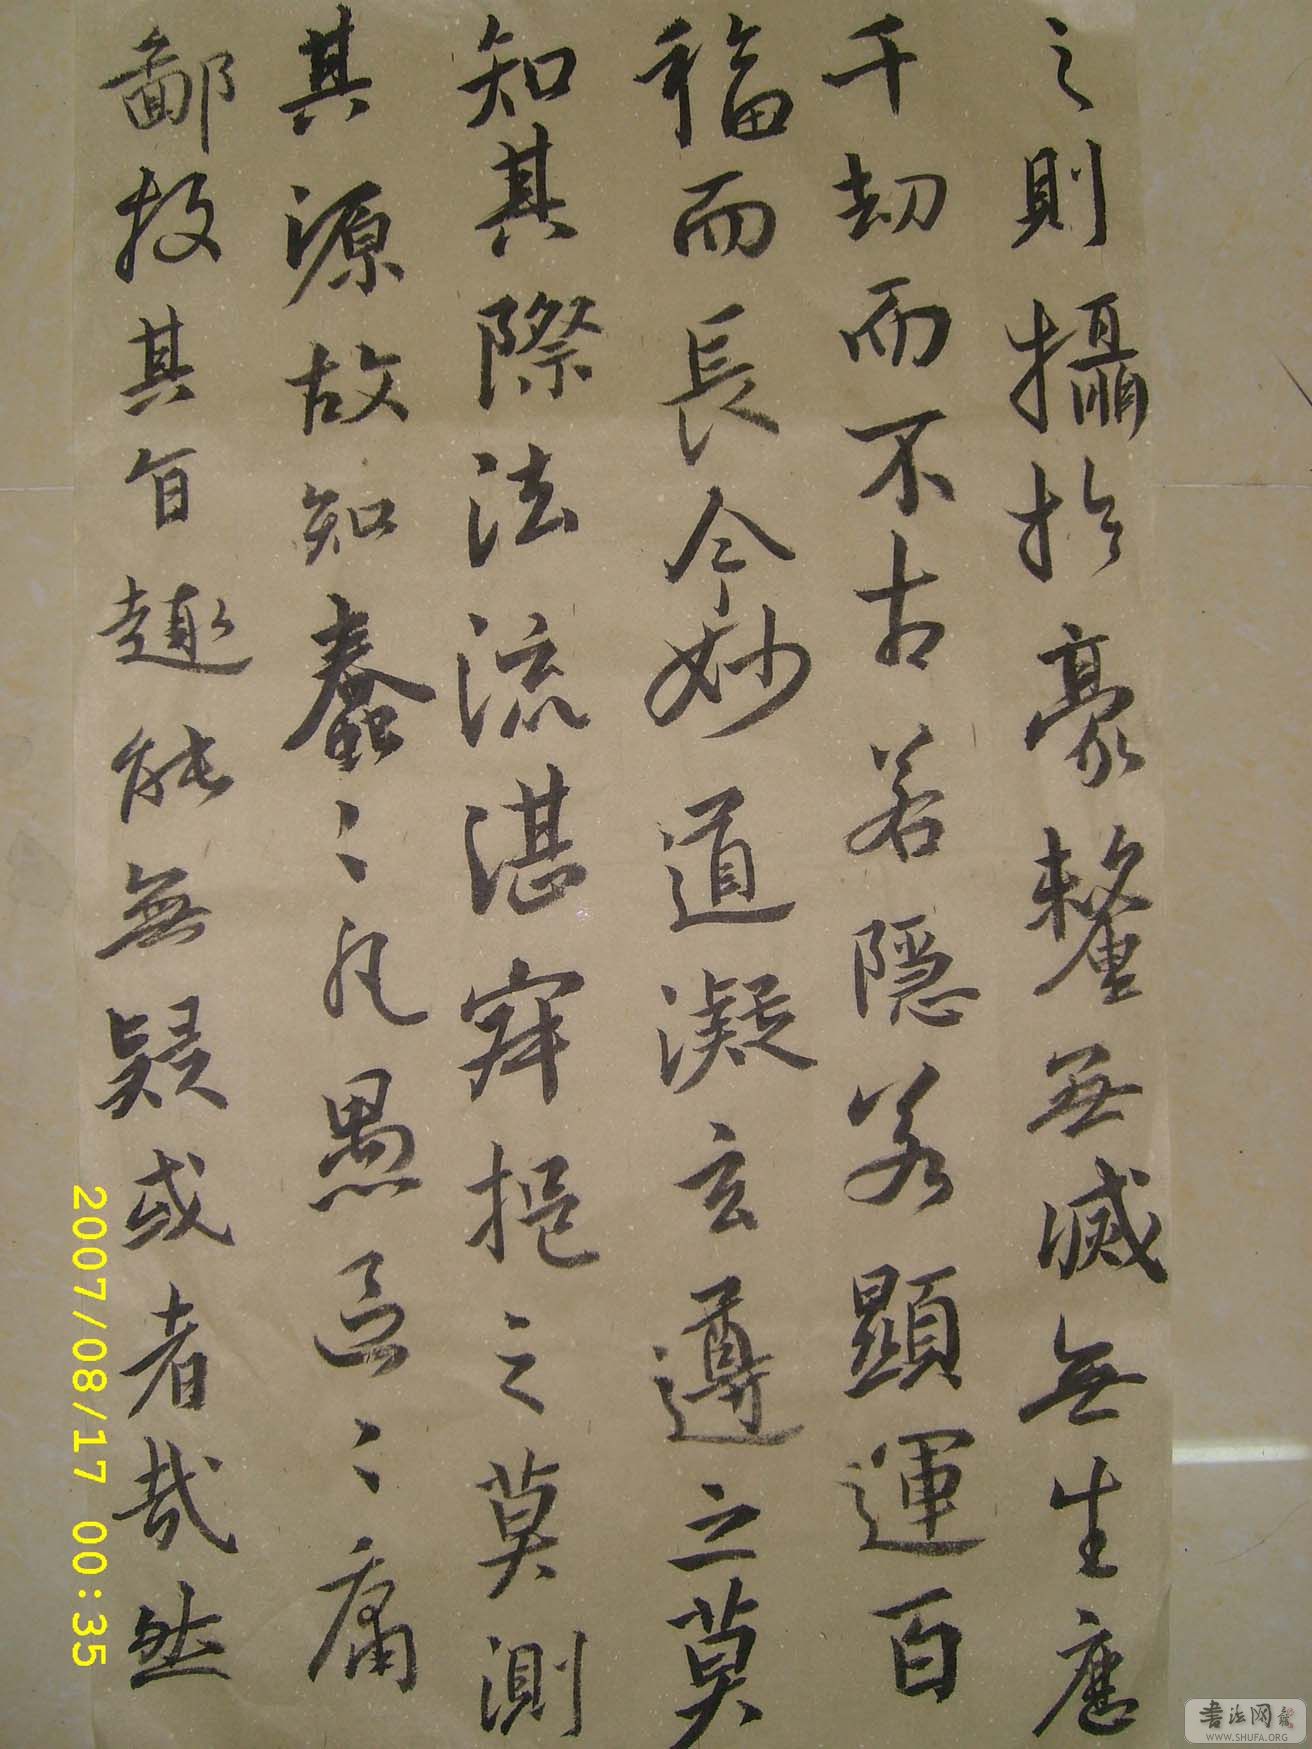 之則攝於豪氂無滅無生歷
千劫而不古若隱若顯運百
福而長今妙道凝玄遵之莫
知其際法流湛寂挹之莫測
其源故知蠢〻凡愚區〻庸
鄙投其旨趣能無疑或者哉然
2007/08/17 00:35
書法网
WWW.SHUFA.ORG